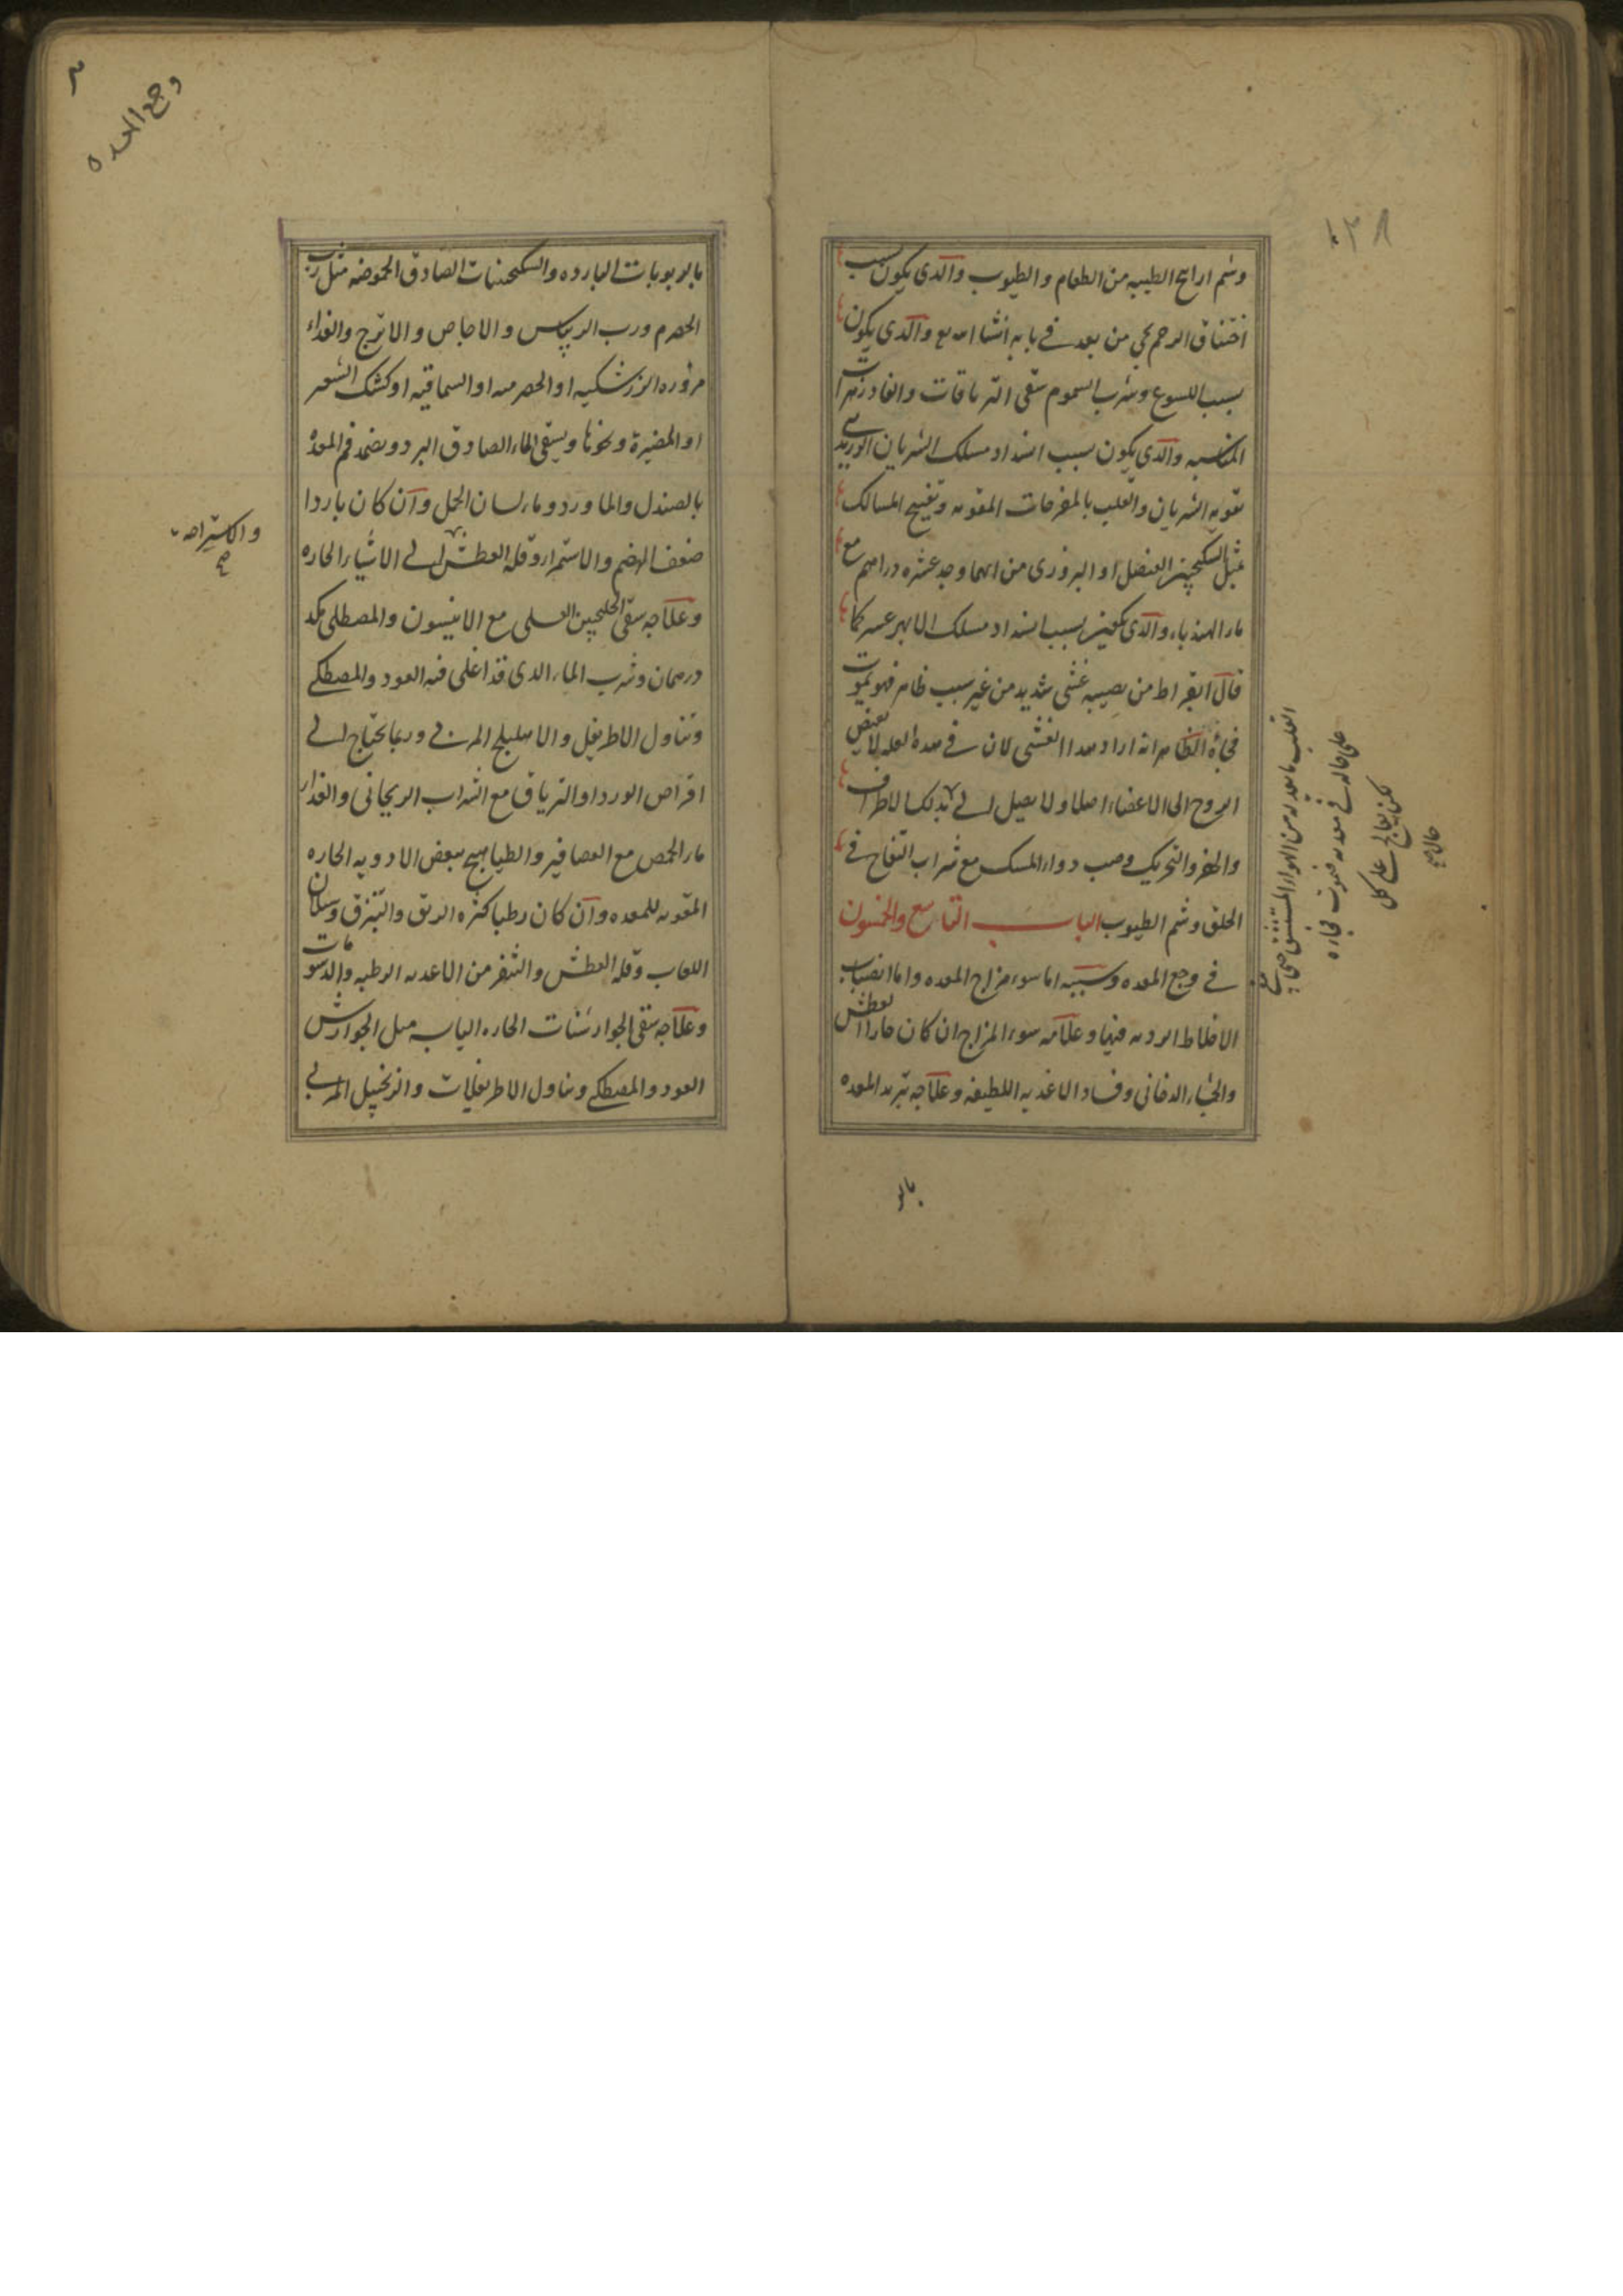 ١٣٨
وشم ارايح الطيبه من الطعام والطيوب والذى يكون بسبب
اختناق الرحم يجى من بعد فى بابه انشا الله تع والذى يكون
بسبب اللسوع وشرب السموم سقى الترياقات والفادزهرات
المناسبه والذى يكون بسبب انسداد مسلك الشريان الوريدى
تقويه الشريان والقلب بالمفرحات المقويه وتفتيح المسالك
مثل السكنجبين العنصلى او البزورى من ايهما وجد عشره دراهم مع
ماء الهندباء والذى يكون بسبب انسداد مسلك الابهر عسر كما
قال ابقراط من يصيبه غشى شديد من غير سبب ظاهر فهو يموت
فجأة الظاهر انه اراد هذا الغشى لان فى هذه العله لا يفيض
الروح الى الاعضاء اصلا ولا يصيل الى بدلك الاطراف
والهز والتحريك وصب دواء المسك مع شراب التفاح فى
الحلق وشم الطيوب الباب التاسع والخمسون
فى وجع المعده وسببه اما سوء مزاج المعده واما انصباب
الاخلاط الرديه فيها وعلامه سوء المزاج ان كان حارا العطش
والجشاء الدخانى وفساد الاغذيه اللطيفه وعلاجه تبريد المعده
القلب ما يغذيه من الهواء المستنشق حتى يبقى
على حاله فى معدنه فيموت فجاءه
لكن يعالج على كل
حال صح
بالر
٣
وجع المعده
بالربوبات البارده والسكنجبينات الصادق الحموضه مثل رب
الحصرم ورب الريباس والاجاص والاترج والغذاء
مزوره الزرشكيه او الحصرميه او السماقيه او كشك الشعير
او المضيرة ونحوها ويسقى الماء الصادق البرد ويضمد فم المعدة
بالصندل والماورد وماء لسان الحمل وان كان باردا
ضعف الهضم والاستمرار وقله العطش الى الاشياء الحاره
والاستراحه
صح
وعلاجه سقى الجلنجبين العسلى مع الانيسون والمصطكى مكد
درهمان وشرب الماء الذى قد اغلى فيه العود والمصطكى
وتناول الاطريفل والاهليلج المربى وربما يحتاج الى
اقراص الورد او الترياق مع الشراب الريحانى والغذاء
ماء الحمص مع العصافير والطياهيج ببعض الادويه الحاره
المقويه للمعده وان كان رطبا كثره الريق والتبزق وسيلان
اللعاب وقله العطش والتنفر من الاغذيه الرطبه والدسومات
وعلاجه سقى الجوارشنات الحاره اليابسه مثل الجوارش
العود والمصطكى وتناول الاطريفلات والزنجبيل المربى